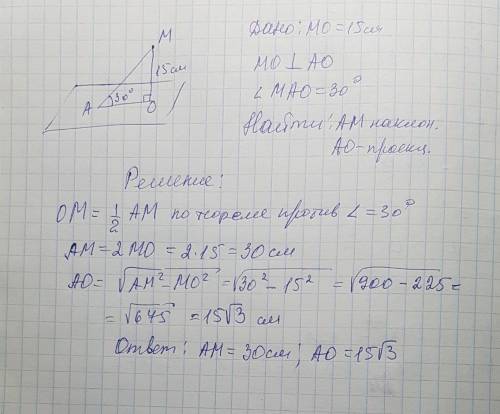 M
15 см
A 30° O
Дано: MO = 15 см
MO ⊥ AO
∠ MAO = 30°
Найти: AM наклон.
AO - проекц.
Решение:
OM = 1/2 AM по теореме против ∠ = 30°
AM = 2 MO = 2 · 15 = 30 см
AO = √AM² - MO² = √30² - 15² = √900 - 225 =
= √645 = 15√3 см
Ответ: AM = 30 см; AO = 15√3